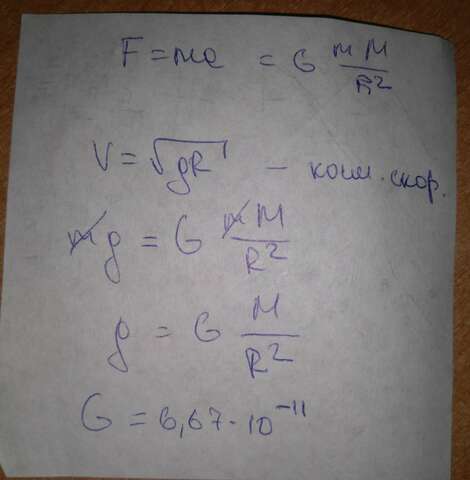 F = ma = G mM/R²
V = √gR – косм. скор.
mg = G mM/R²
g = G M/R²
G = 6,67·10⁻¹¹